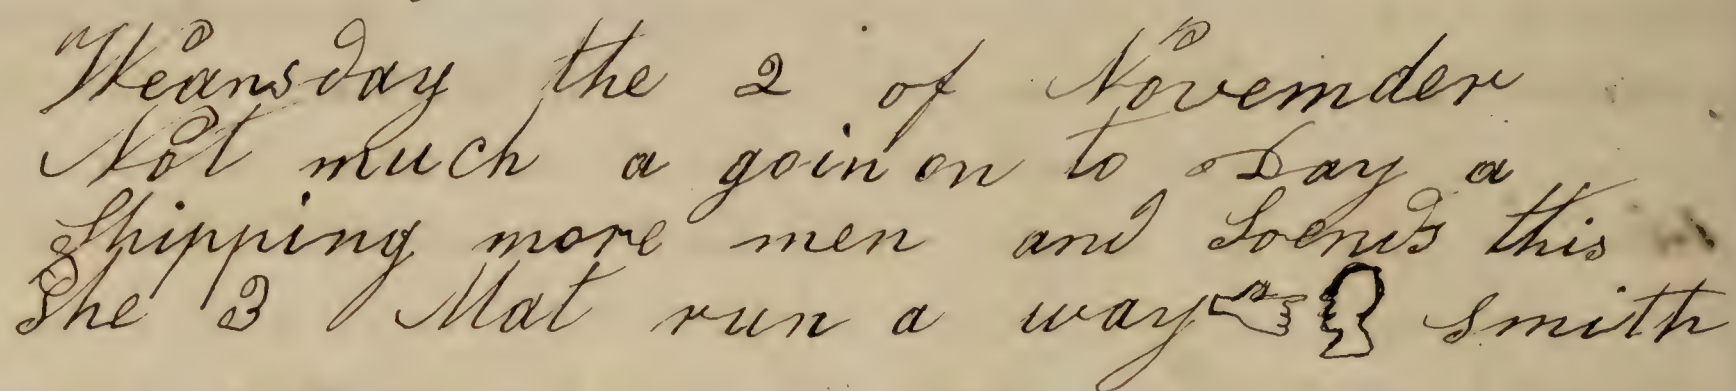 Weansday the 2 of Novemder
Not much a goin on to Day a
Shipping more men and Soends this
The 3 Mat run a way smith